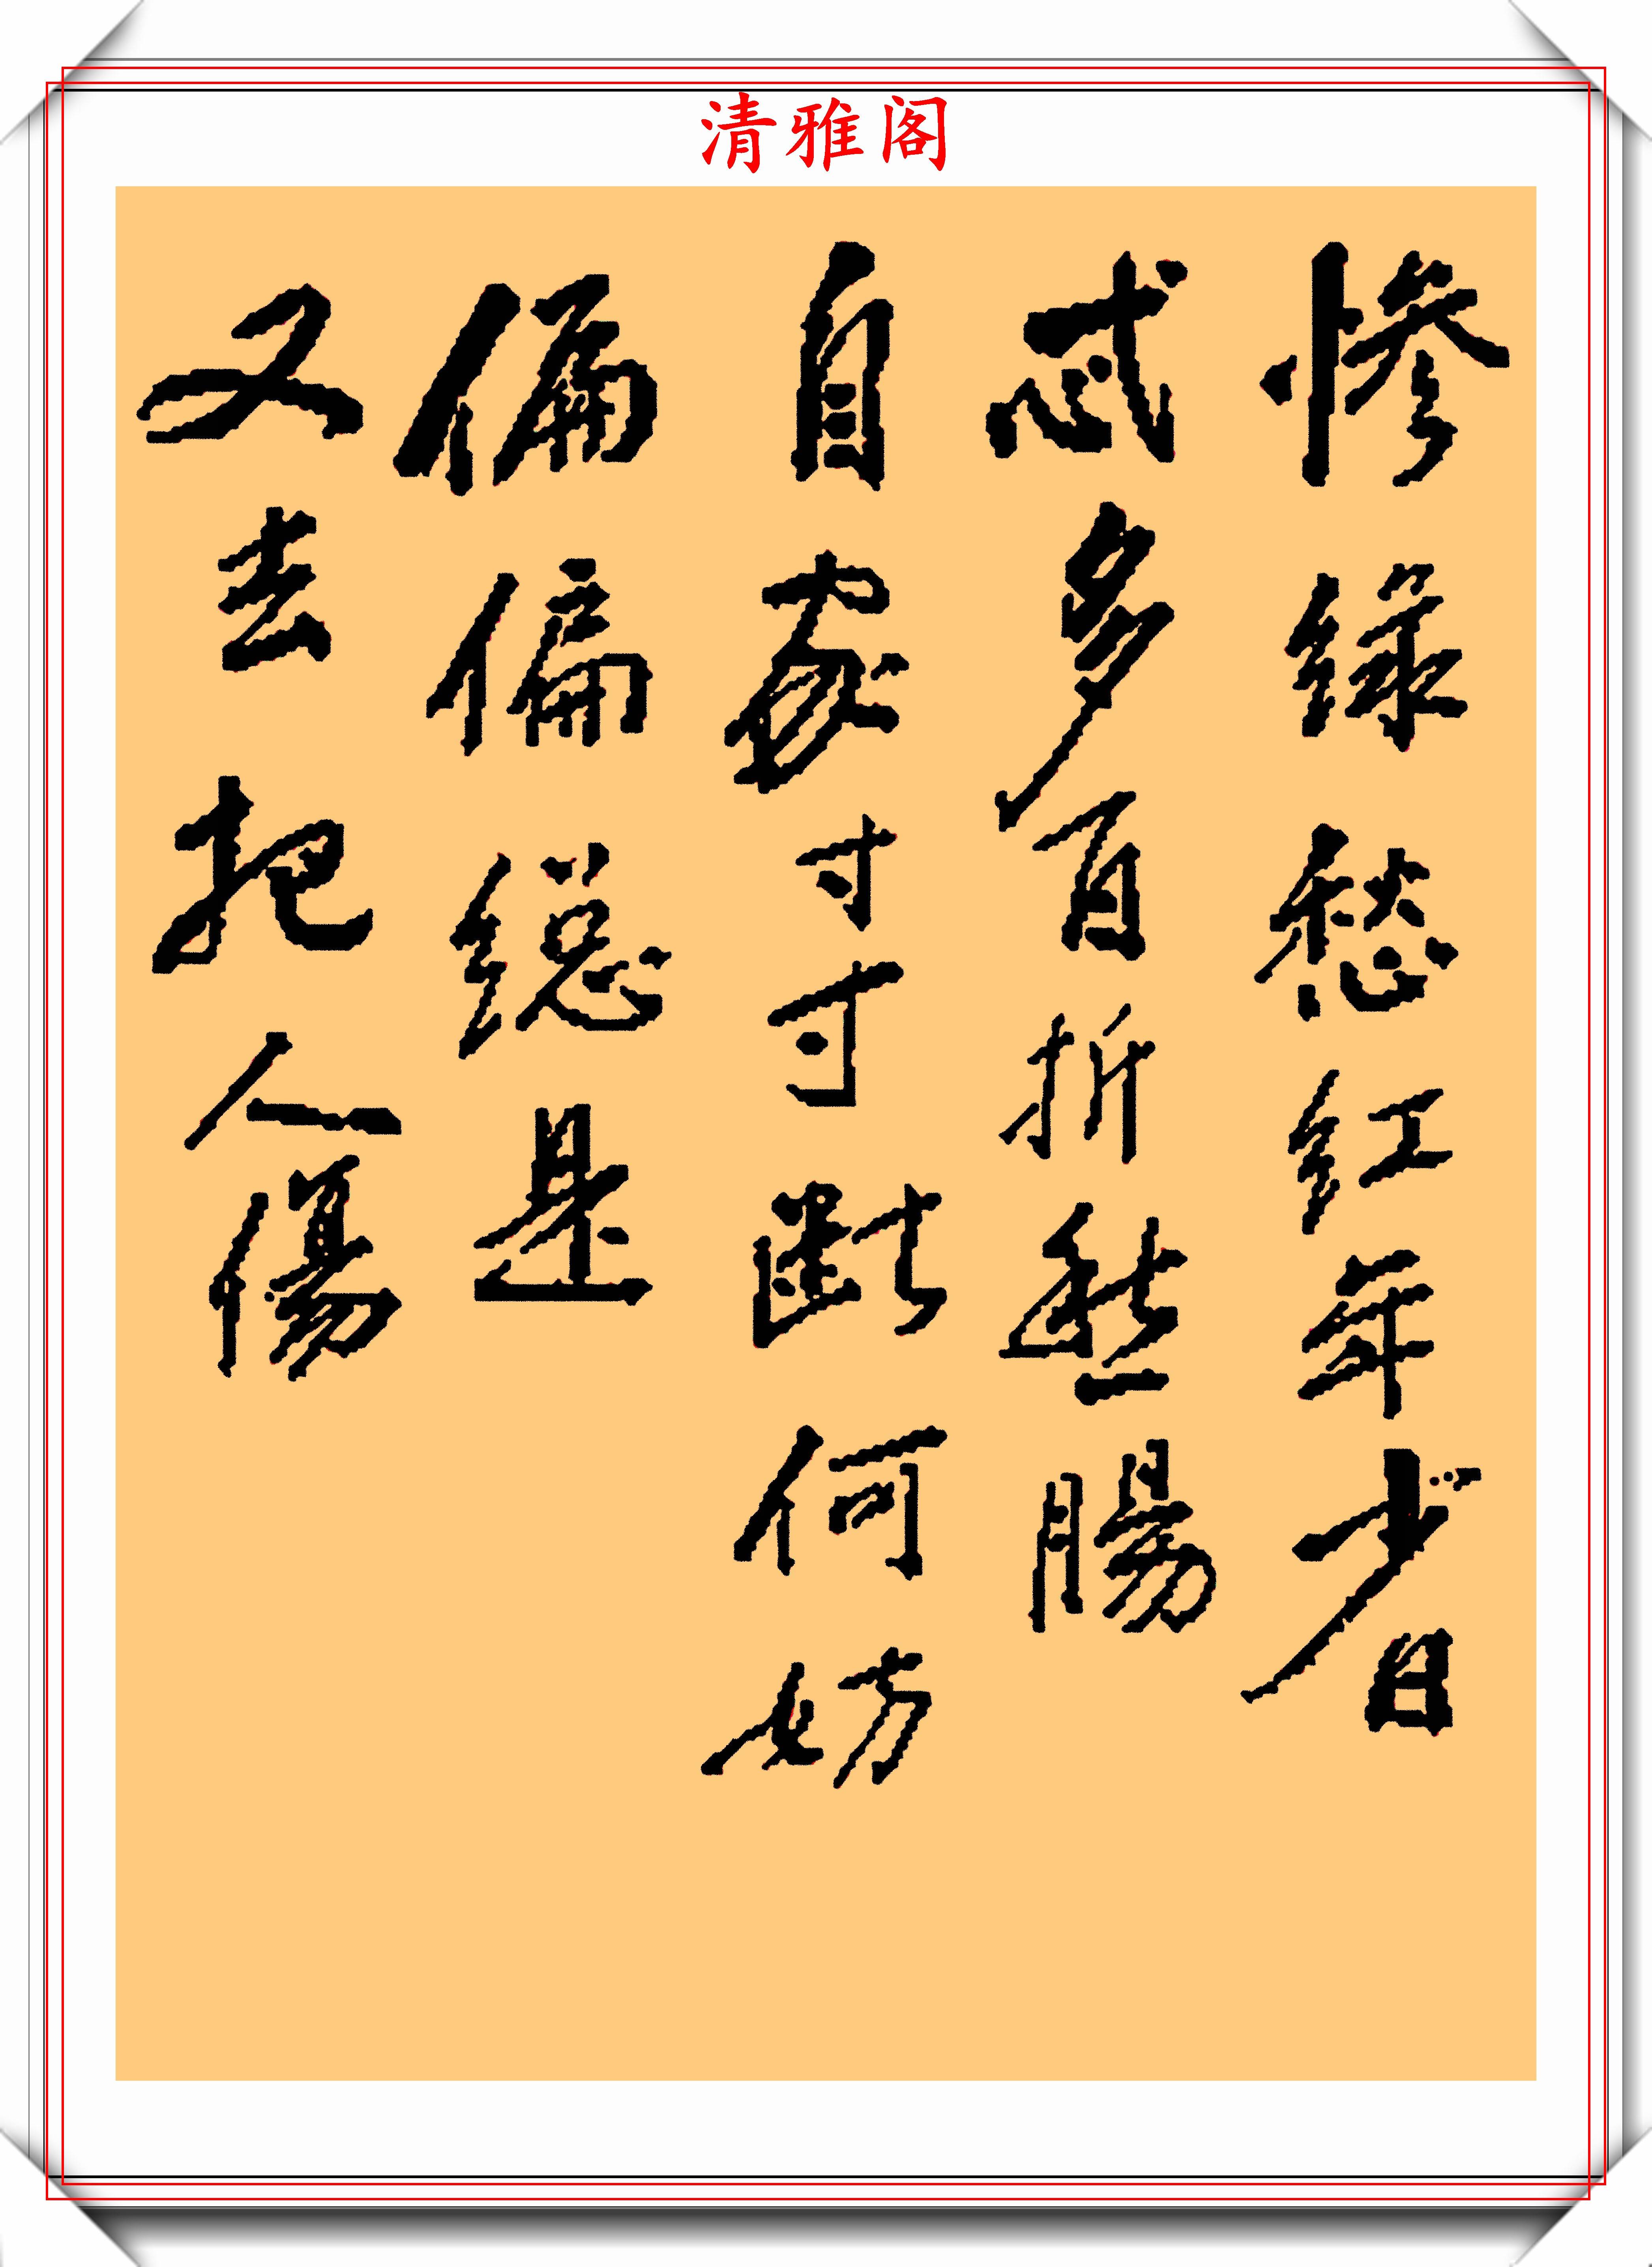 清雅阁
惨緑愁红年少日
忒多百折腸
自家寸寸断何妨
偏偏總是
又去把人傷